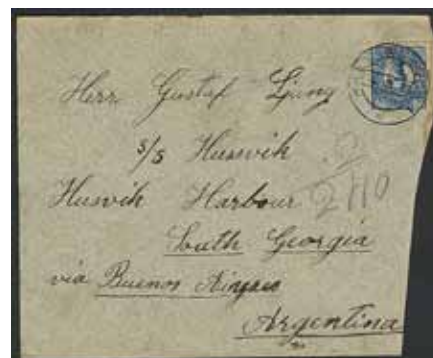 Herr Gustaf Ljung
s/s Husvik
Husvik Harbour
2110
South Georgia
via Buenos Aires
Argentina